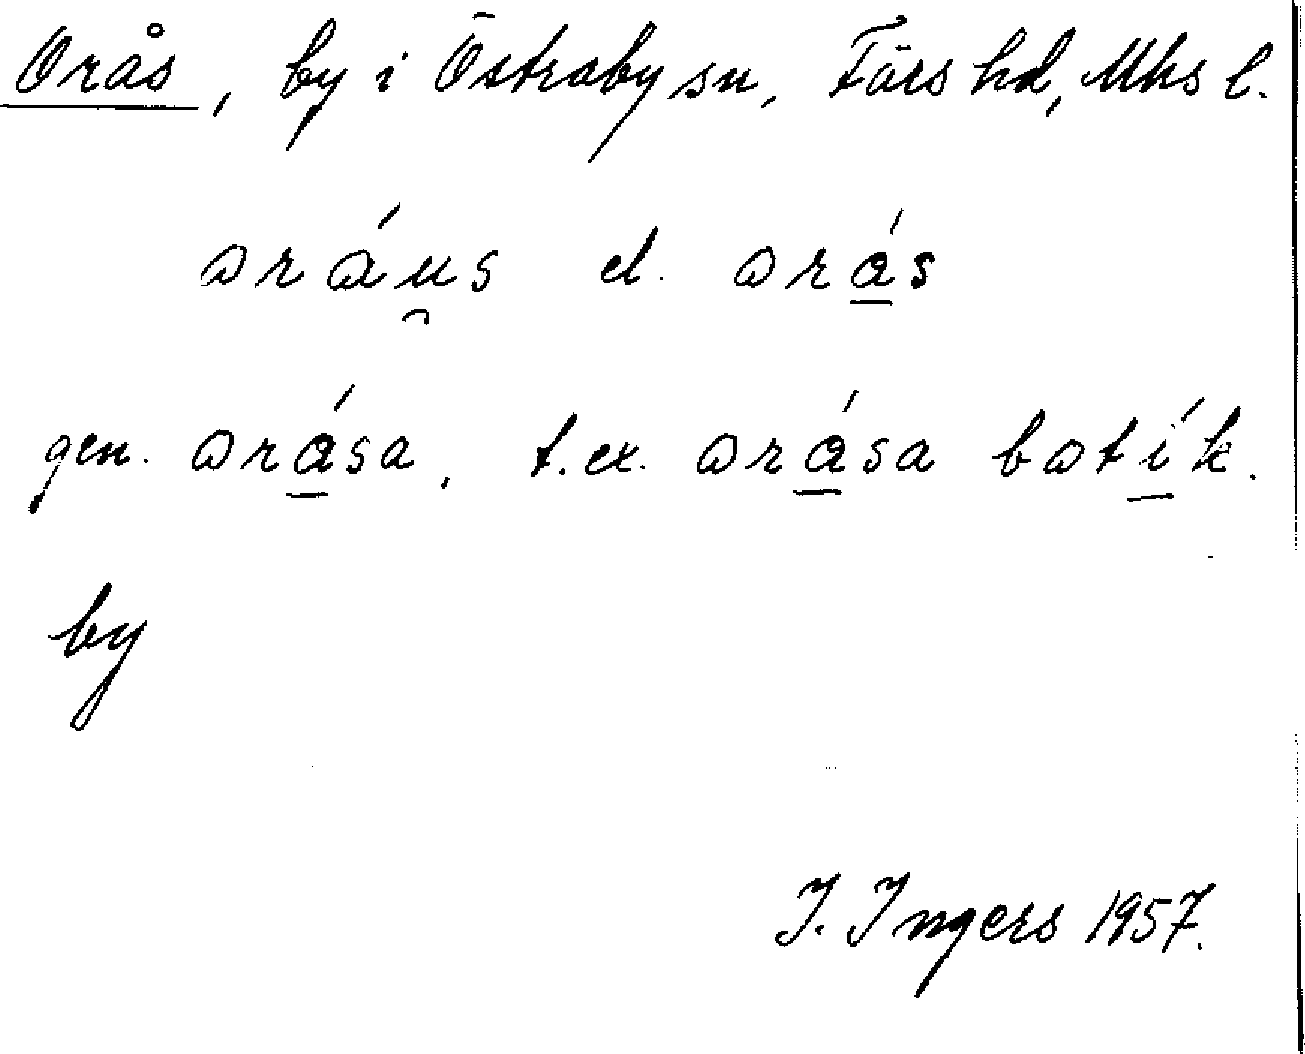 Orås, by i Östraby sn, Färs hd, Mhs l.
oráu̯s el. orá̲s
gen. orá̲sa, t.ex. orá̲sa botí̲k.
by
I. Ingers 1957.